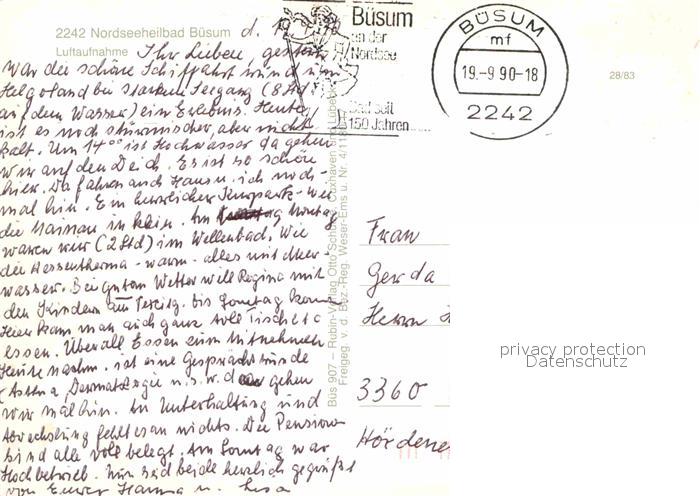 2242 Nordseeheilbad Büsum
Luftaufnahme
d. 19.
Ihr Lieben, gestern
war die schöne Schiffahrt rund um
Helgoland bei starkem Seegang (8 Std
auf dem Wasser) ein Erlebnis. Heute
ist es noch stürmischer, aber nicht
kalt. Um 14°° ist Hochwasser da gehen
wir auf den Deich. Es ist so schön
hier. Da fahren auch Hans u. ich noch-
mal hin. Ein herrlicher Kurpark - wie
die in klein. Am Montag
waren wir (2 Std) im Wellenbad. Wie
die Hessentherma - warm - alles mit Meer-
wasser. Bei gutem Wetter will Regina mit
den Kindern bis Sonntag kom
Hier kann man auch ganz tolle Fische
essen. Überall Essen zum Mitnehmen
Heute nachm. ist eine Gesprächsrunde
(Asthma, Dermatologie u.s.w. da gehen
wir mal hin. An Unterhaltung und
Abwechslung fehlt es an nichts. Die Pensionen
sind alle voll belegt. Am Sonntag war
Hochbetrieb. Nun seid beide herzlich gegrüßt
von Eurer Hanna u.
Büs 907 – Rubin-Verlag Otto Schu Cuxhaven und Lübeck
Freigeg. v. d. Bez.-Reg. Weser-Ems u. Nr. 4/118
Büsum
an der
Nordsee
Bad seit
150 Jahren
BÜSUM
mf
19.-9 90-18
2242
28/83
Frau
Gerda
Herrn
3360
Hördene
privacy protection
Datenschutz